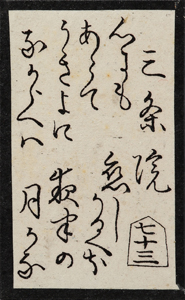 三条院
心にも
あらて
うきよに
なからへは
恋し
かるへき
夜半の
月かな
七十三